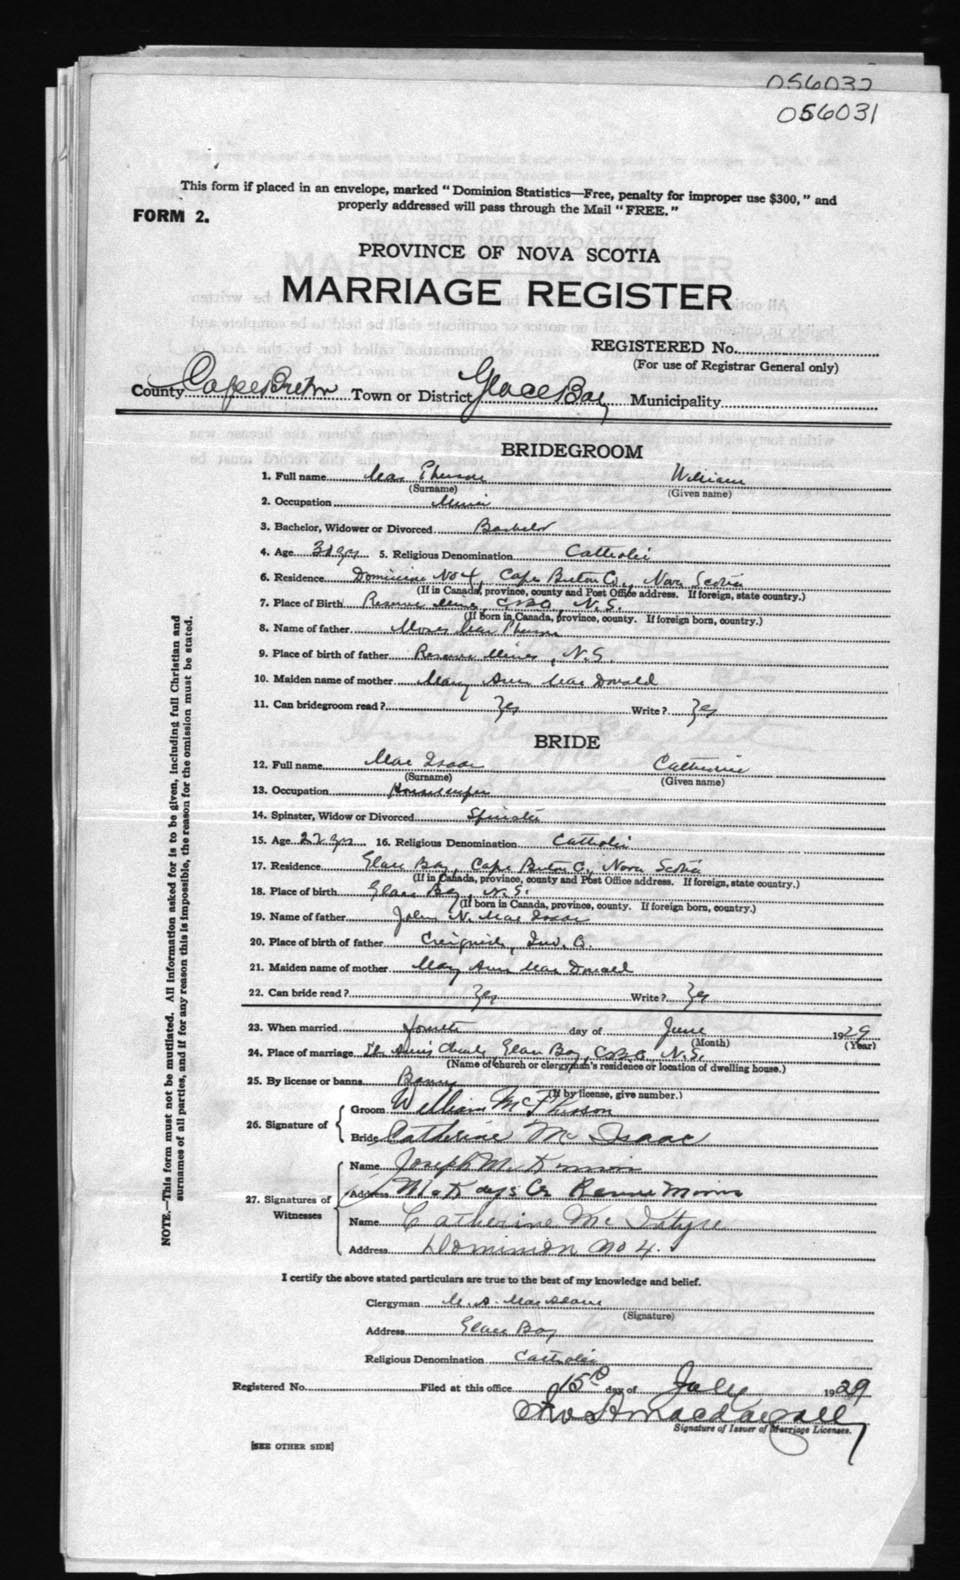 056032
056031
This form if placed in an envelope, marked "Dominion Statistics—Free, penalty for improper use $300," and
properly addressed will pass through the Mail "FREE."
FORM 2.
PROVINCE OF NOVA SCOTIA
MARRIAGE REGISTER
REGISTERED No.
(For use of Registrar General only)
County Cape Breton Town or District Glace Bay Municipality
BRIDEGROOM
1. Full name Mac Pherson William
(Surname) (Given name)
2. Occupation Miner
3. Bachelor, Widower or Divorced Bachelor
4. Age yrs 5. Religious Denomination Catholic
6. Residence Dominion No 4, Cape Breton Co., Nova Scotia
(If in Canada, province, county and Post Office address. If foreign, state country.)
7. Place of Birth Reserve Mines, C.B.Co., N.S.
(If born in Canada, province, county. If foreign born, country.)
8. Name of father Moses Mac Pherson
9. Place of birth of father Reserve Mines, N.S.
10. Maiden name of mother Mary Ann Mac Donald
11. Can bridegroom read? Yes Write? Yes
BRIDE
12. Full name Mac Isaac Catherine
(Surname) (Given name)
13. Occupation Housekeeper
14. Spinster, Widow or Divorced Spinster
15. Age 22 yrs 16. Religious Denomination Catholic
17. Residence Glace Bay, Cape Breton Co., Nova Scotia
(If in Canada, province, county and Post Office address. If foreign, state country.)
18. Place of birth Glace Bay, N.S.
(If born in Canada, province, county. If foreign born, country.)
19. Name of father John N. Mac Isaac
20. Place of birth of father Creignish, Inv. Co.
21. Maiden name of mother Mary Ann Mac Donald
22. Can bride read? Yes Write? Yes
23. When married fourth day of June 1929
(Month) (Year)
24. Place of marriage St. Ann's Church, Glace Bay, C.B.Co. N.S.
(Name of church or clergyman's residence or location of dwelling house.)
25. By license or banns Banns
(If by license, give number.)
26. Signature of
Groom William McPherson
Bride Catherine Mc Isaac
27. Signatures of Witnesses
Name Joseph McKinnon
Address McKays Cr Reserve Mines
Name Catherine Mc Intyre
Address Dominion No 4.
I certify the above stated particulars are true to the best of my knowledge and belief.
Clergyman
(Signature)
Address Glace Bay
Religious Denomination Catholic
Registered No. Filed at this office 15th day of July 1929
Macdougall
Signature of Issuer of Marriage Licenses.
[SEE OTHER SIDE]
NOTE.—This form must not be mutilated. All information asked for is to be given, including full Christian and
surnames of all parties, and if for any reason this is impossible, the reason for the omission must be stated.